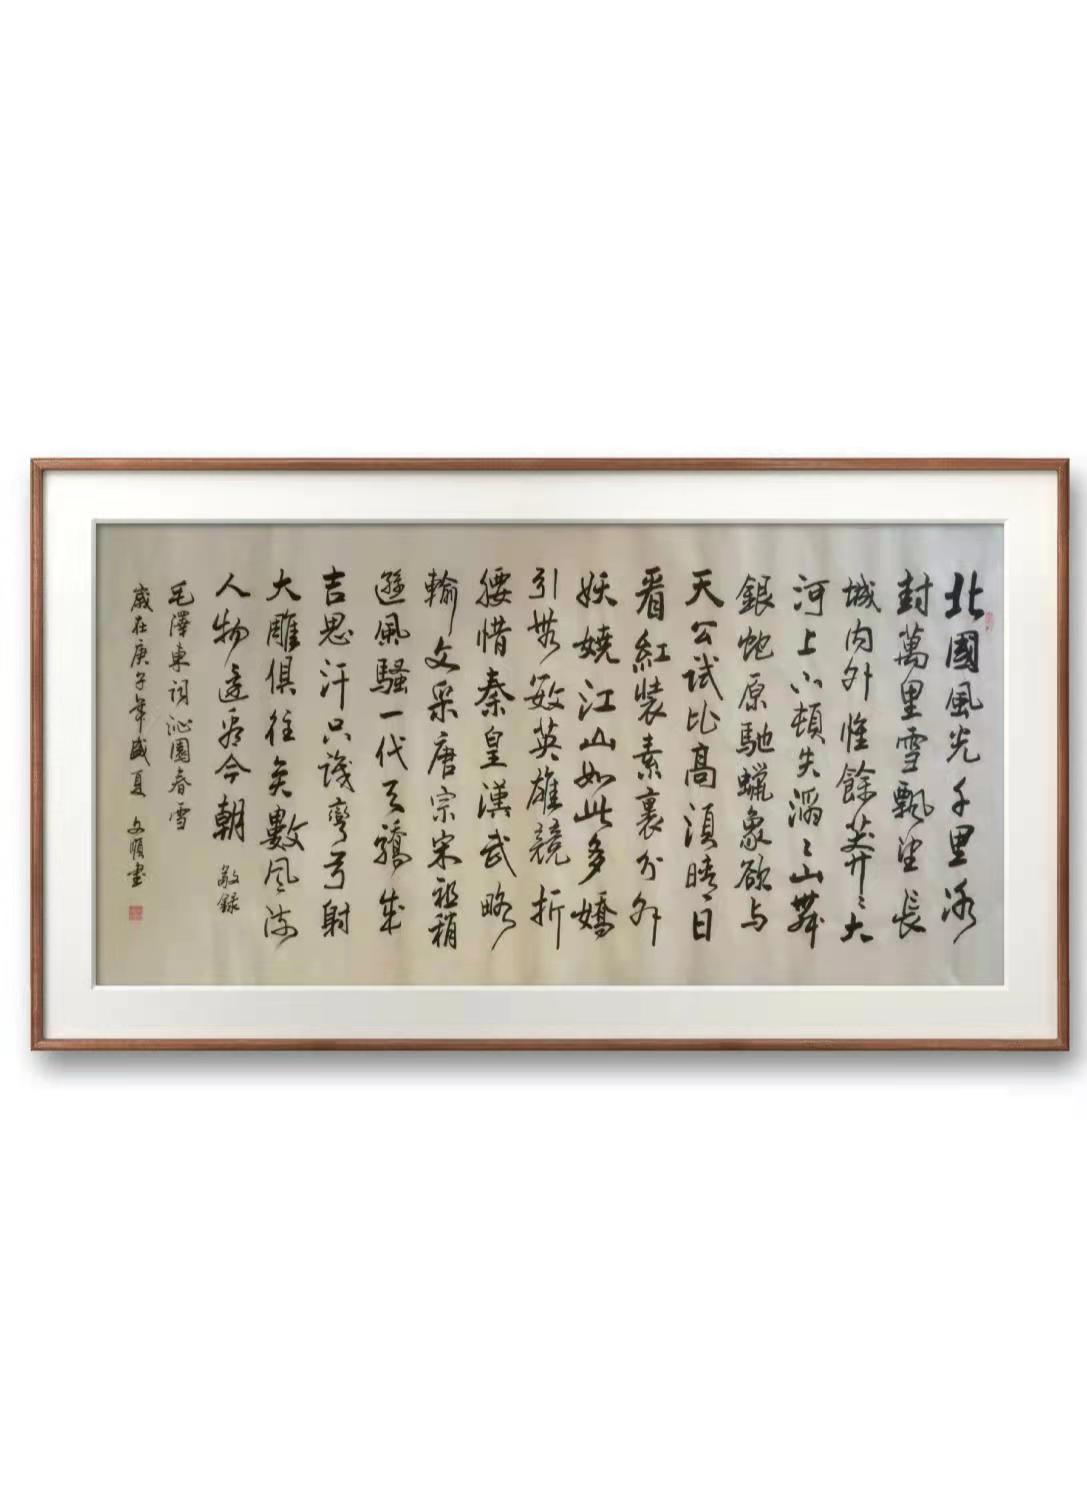 北國風光千里冰
封萬里雪飄望長
城内外惟餘莽〻大
河上下頓失滔〻山舞
銀蛇原馳蠟象欲与
天公試比高須晴日
看紅裝素裹分外
妖嬈江山如此多嬌
引無數英雄競折
腰惜秦皇漢武略
輸文采唐宗宋祖稍
遜風騷一代天驕成
吉思汗只識彎弓射
大雕俱往矣數风流
人物還看今朝 敬録
毛澤東詞沁園春雪
歲在庚子年盛夏 文順書